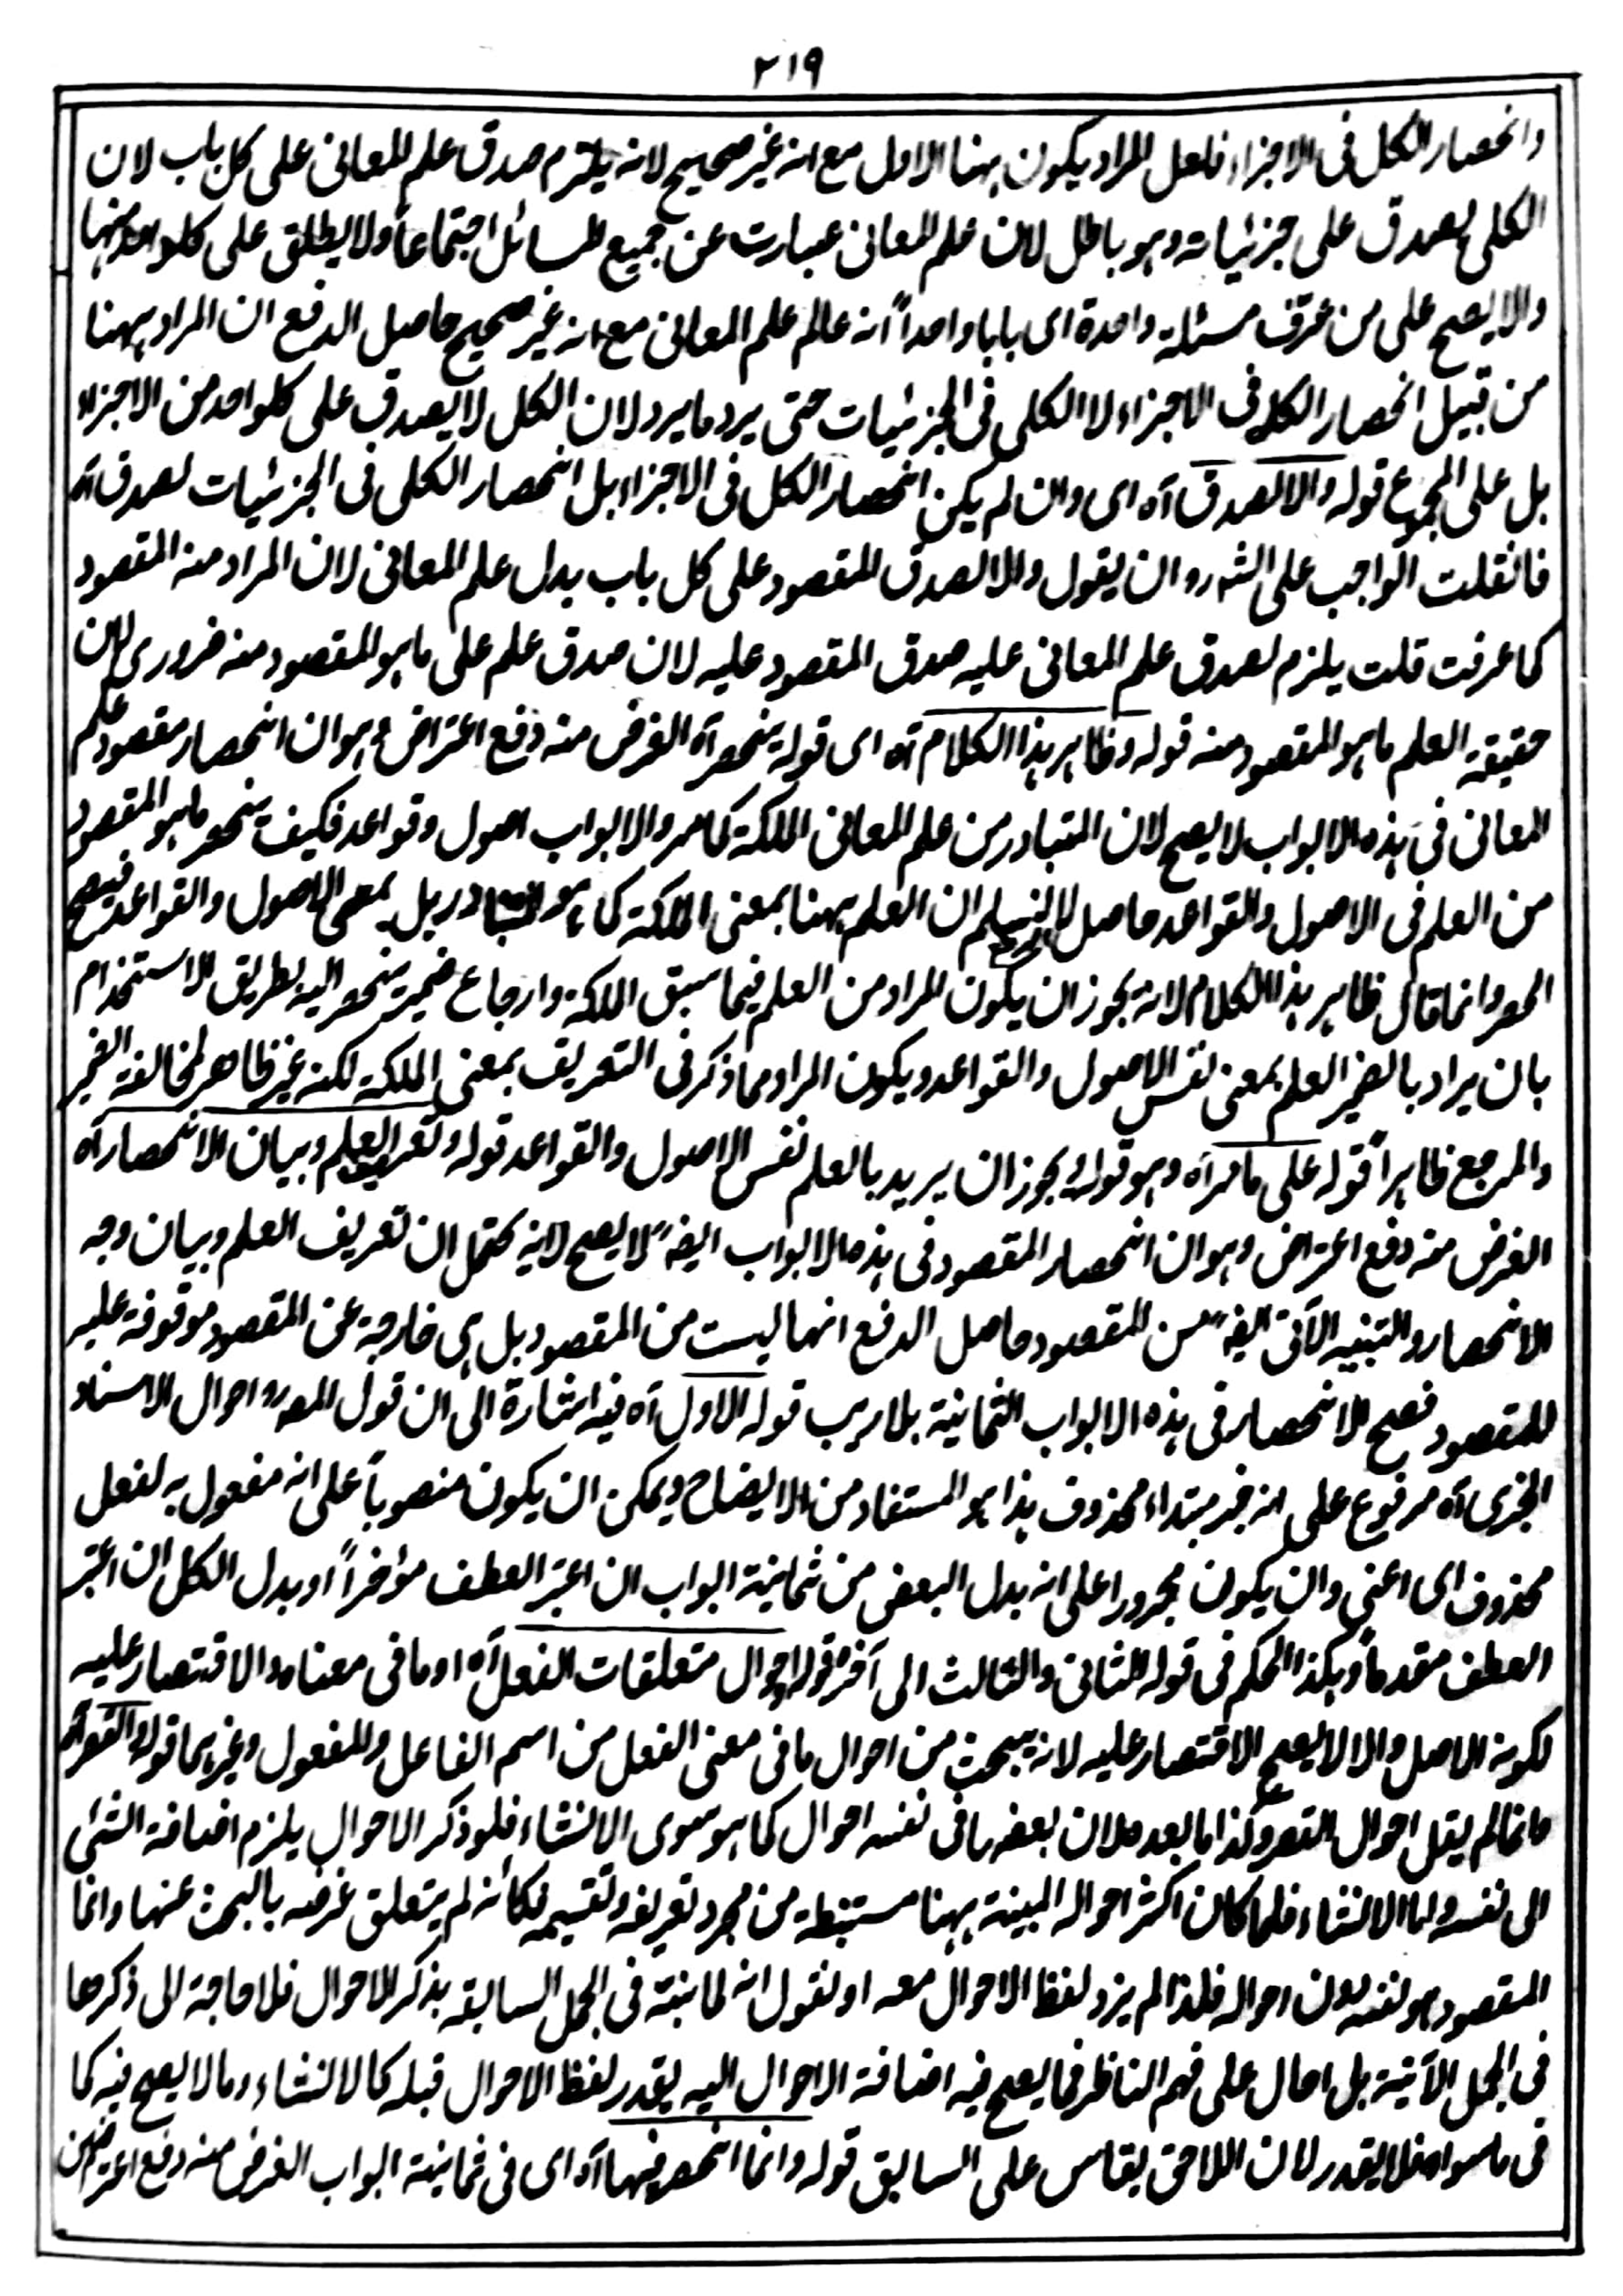 ٢١٩
وانحصار الكل فى الاجزاء فلعل المراد يكون ههنا الاول مع انه غير صحيح لانه يلتزم صدق علم المعانى على كل باب لان
الكلى يصدق على جزئياته وهو باطل لان علم المعانى عبارت عن جميع المسائل اجتماعاً ولا يطلق على كلواحد منها
والا يصح على من عرف مسئلة واحدة اى بابا واحداً انه عالم علم المعانى مع انه غير صحيح حاصل الدفع ان المراد ههنا
من قبيل انحصار الكل فى الاجزاء لا الكلى فى الجزئيات حتى يرد ما يرد لان الكل لا يصدق على كلواحد من الاجزاء
بل على المجموع قوله والا لصدق آه اى وان لم يكن انحصار الكل فى الاجزاء بل انحصار الكلى فى الجزئيات لصدق آه
فانقلت الواجب على الشه رو ان يقول والا لصدق المقصود على كل باب بدل علم المعانى لان المراد منه المقصود
كما عرفت قلت يلزم لصدق علم المعانى عليه صدق المقصود عليه لان صدق علم على ما هو المقصود منه ضرورى لان
حقيقة العلم ما هو المقصود منه قوله وظاهر هذا الكلام آه اى قوله ينحصر آه الغرض منه دفع اعتراض وهو ان انحصار مقصود علم
المعانى فى هذه الابواب لا يصح لان المتبادر من علم المعانى الملكة كما مر والابواب اصول وقواعد فكيف ينحصر ما هو المقصود
من العلم فى الاصول والقواعد حاصل لا نسلم ان العلم ههنا بمعنى الملكة كما هو المتبادر بل بمعنى الاصول والقواعد فيصح
الحصر وانما قال ظاهر هذا الكلام لانه يجوز ان يكون المراد من العلم فيما سبق الملكة وارجاع ضمير ينحصر اليه بطريق الاستخدام
بان يراد بالضمير العلم بمعنى نفس الاصول والقواعد ويكون المراد مما ذكر فى التعريف بمعنى الملكة لكنه غير ظاهر لمخالفة الضمير
والمرجع ظاهراً قوله على ما مر آه وهو قوله ويجوز ان يريد بالعلم نفس الاصول والقواعد قوله وتعريف العلم وبيان الانحصار آه
الغرض منه دفع اعتراض وهو ان انحصار المقصود فى هذه الابواب ايضه لا يصح لانه يحتمل ان تعريف العلم وبيان وجه
الانحصار والتنبيه الآتى ايضه من المقصود حاصل الدفع انها ليست من المقصود بل هى خارجة عن المقصود موقوفة عليه
للمقصود فصح الانحصار فى هذه الابواب الثمانية بلا ريب قوله الاول آه فيه اشارة الى ان قول المص رو احوال الاسناد
الخبرى آه مرفوع على انه خبر مبتداء محذوف هذا هو المستفاد من الايضاح ويمكن ان يكون منصوباً على انه مفعول به لفعل
محذوف اى اعنى وان يكون مجرورا على انه بدل البعض من ثمانية ابواب ان اعتبر العطف مؤخراً او بدل الكل ان اعتبر
العطف مقدماً وهكذا الحكم فى قوله الثانى والثالث الى آخره قوله احوال متعلقات الفعل آه او ما فى معناه والاقتصار عليه
لكونه الاصل والا لا يصح الاقتصار عليه لانه يبحث من احوال ما فى معنى الفعل من اسم الفاعل والمفعول وغيرهما قوله القصر آه
وانما لم يقل احوال القصر وكذا ما بعده لان بعضه ما فى نفسه احوال كما هو سوى الانشاء فلو ذكر الاحوال يلزم اضافة الشئ
الى نفسه واما الانشاء فلما كان اكثر احواله المبينة ههنا مستنبطة من مجرد تعريفه وتقسيمه فكانه لم يتعلق غرضه بالبحث عنها وانما
المقصود هو نفسه دون احواله فلذا لم يزد لفظ الاحوال معه او نقول انه لما نبه فى الجمل السابقة بذكر الاحوال فلا حاجة الى ذكرها
فى الجمل الآتية بل احال على فهم الناظر فما يصح فيه اضافة الاحوال اليه يقدر لفظ الاحوال قبله كالانشاء وما لا يصح فيه كما
فى ما سواه فلا يقدر لان اللاحق يقاس على السابق قوله وانما انحصر فيها آه اى فى ثمانية ابواب الغرض منه دفع اعتراض